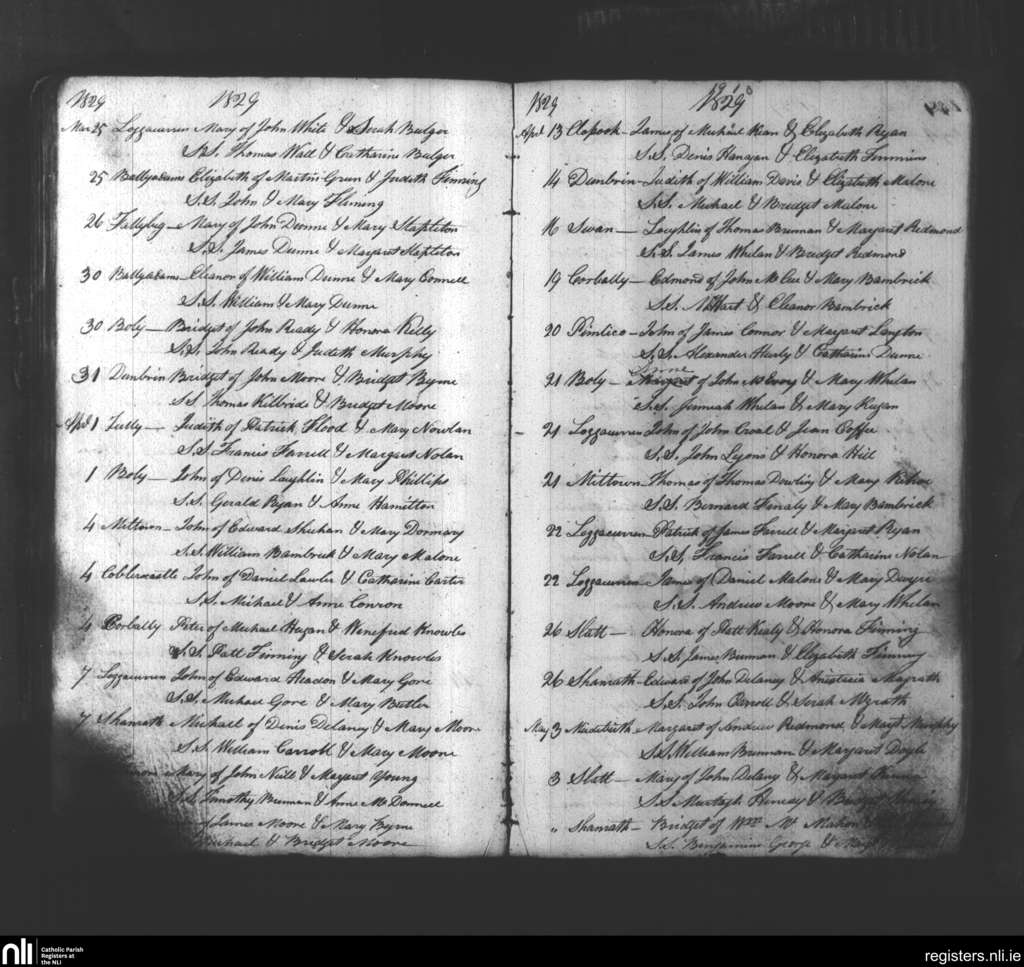 1829 1829
Mar 25 Loggacurren Mary of John White & Serah Bulger
S.S. Thomas Wall & Catharine Bulger
25 Ballyadams Elizabeth of Martin Grun & Judith Finning
S.S. John & Mary Fleming
26 Fallybeg - Mary of John Dunne & Mary Stapleton
S.S. James Dunne & Margaret Stapleton
30 Ballyadams - Eleanor of William Dunne & Mary Connell
S.S. William & Mary Dunne
30 Boly - Bridget of John Ready & Honora Kelly
S.S. John Ready & Judith Murphy
31 Dunbrin Bridget of John Moore & Bridget Byrne
S.S. Thomas Kilbride & Bridget Moore
Apd 1 Tully - Judith of Patrick Flood & Mary Nowlan
S.S. Francis Farrell & Margaret Nolan
1 Boly - John of Denis Laughlin & Mary Phillips
S.S. Gerald Ryan & Anne Hamilton
4 Miltown - John of Edward Shuhan & Mary
S.S. William Bambrick & Mary Malone
4 Coblerscastle John of Daniel Lawler & Catharine Carter
S.S. Michael & Anne Conron
4 Corbally Peter of Michael Hugan & Wenefred Knowles
S.S. Patt Finning & Serah Knowles
7 Loggacurren John of Edward Readon & Mary Gore
S.S. Michael Gore & Mary Butler
7 Shanrath - Michael of Denis Delaney & Mary Moore
S.S. William Carroll & Mary Moore
Mary of John Neill & Margaret Young
S.S. Timothy Brunan & Anne McDonnell
of James Moore & Mary Byrne
Michael & Bridget Moore
1829 1829
Apd 13 Clopook - James of Michael Kean & Elizabeth Ryan
S.S. Denis Hanagan & Elizabeth Timmins
14 Dunbrin - Judith of William Davis & Elizabeth Malone
S.S. Michael & Bridget Malone
16 Swan - Loughlin of Thomas Brunan & Margaret Redmond
S.S. James Whelan & Bridget Redmond
19 Corbally - Edmond of John McCue & Mary Bambrick
S.S. Hart & Eleanor Bambrick
20 Pimlico - John of James Connor & Margaret Langton
S.S. Alexander Healy & Catharine Dunne
21 Boly - of John McEvoy & Mary Whelan
S.S. Jeremiah Whelan & Mary Regan
21 Loggacurren John of John Croal & Jean Coffee
S.S. John Lyons & Honora Hill
21 Miltown - Thomas of Thomas Dowling & Mary Kehoe
S.S. Bernard Finaly & Mary Bambrick
22 Loggacurren - Patrick of James Farrell & Margaret Ryan
S.S. Francis Farrell & Catharine Nolan
22 Loggacurren - James of Daniel Malone & Mary Dwyre
S.S. Andrew Moore & Mary Whelan
26 Slatt - Honora of Patt Kealy & Honora Finning
S.S. James Brunan & Elizabeth Finning
26 Shanrath - Edward of John Delaney & Anastasia Magrath
S.S. John Carroll & Serah Mgrath
May 3 Margaret of Andrew Redmond & Margt Murphy
S.S. William Brunan & Margaret Doyle
3 Slatt - Mary of John Delany & Margaret
S.S. Murtagh & Bridget
" Shanrath - Bridget of Wm McMahon &
S.S. Benjamin George &
nli Catholic Parish
Registers at
the NLI
registers.nli.ie